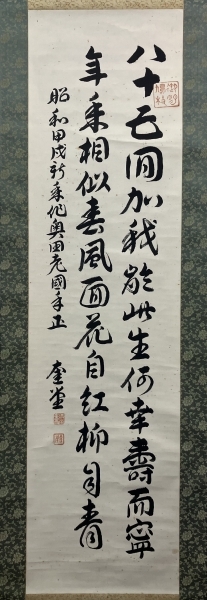 八十三回加我齡此生何幸壽而寧
年来相似春風面花自紅柳自青
昭和甲戌新来作奥田老國手正 奎堂